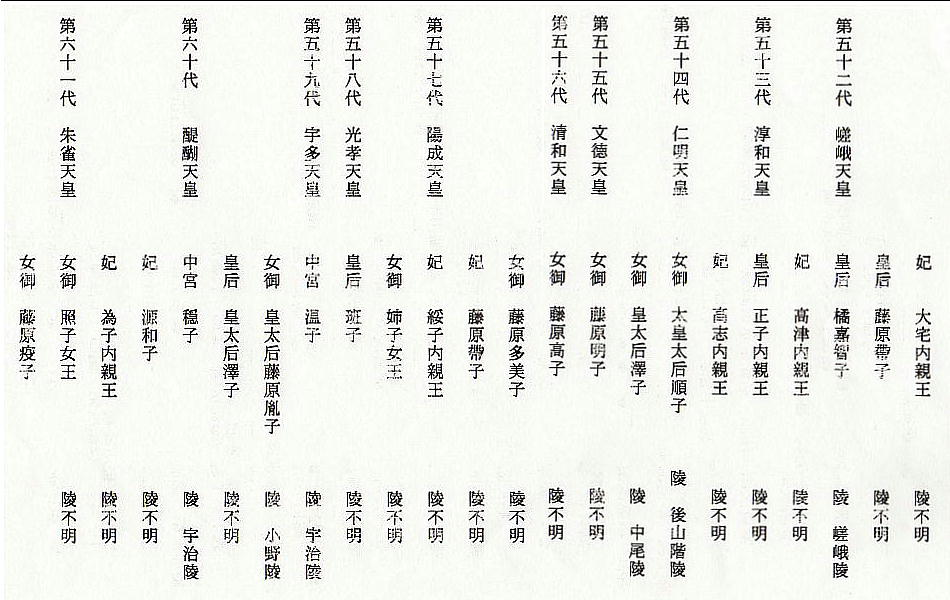 妃　大宅内親王　陵不明
皇后　藤原帶子　陵不明
第五十二代　嵯峨天皇　皇后　橘嘉智子　陵　嵯峨陵
妃　高津内親王　陵不明
第五十三代　淳和天皇　皇后　正子内親王　陵不明
妃　高志内親王　陵不明
第五十四代　仁明天皇　女御　太皇太后順子　陵　後山階陵
女御　皇太后澤子　陵　中尾陵
第五十五代　文徳天皇　女御　藤原明子　陵不明
第五十六代　清和天皇　女御　藤原高子　陵不明
女御　藤原多美子　陵不明
妃　藤原帶子　陵不明
第五十七代　陽成天皇　妃　綏子内親王　陵不明
女御　姉子女王　陵不明
第五十八代　光孝天皇　皇后　班子　陵不明
第五十九代　宇多天皇　中宮　温子　陵　宇治陵
女御　皇太后藤原胤子　陵　小野陵
皇后　皇太后澤子　陵不明
第六十代　醍醐天皇　中宮　穏子　陵　宇治陵
妃　源和子　陵不明
妃　為子内親王　陵不明
第六十一代　朱雀天皇　女御　熙子女王　陵不明
女御　藤原慶子